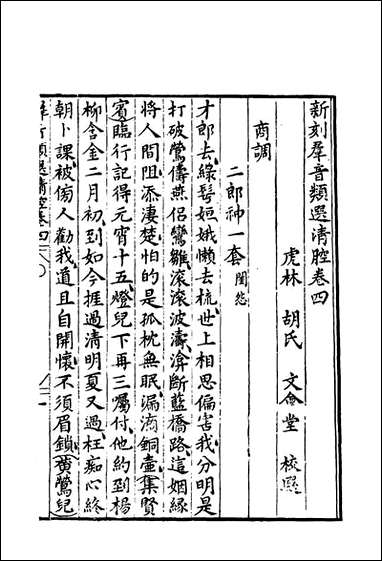 新刻羣音類選清腔卷四
虎林 胡氏 文會堂 校選
商調
二郎神一套 閨怨
才郎去綠髩姮娥懶去梳世上相思偏害我分明是
打破鶯儔燕侶鸞雛滚滚波濤渰斷藍橋路這姻緣
將人間阻添淒楚怕的是孤枕無眠漏滴銅壺集賢
賓臨行記得元宵十五燈兒下再三囑付他約到楊
柳含金二月初到如今捱過清明夏又過枉痴心終
朝卜課被傍人勸我道且自開懷不須眉鎖黃鶯兒
羣音類選清腔卷四